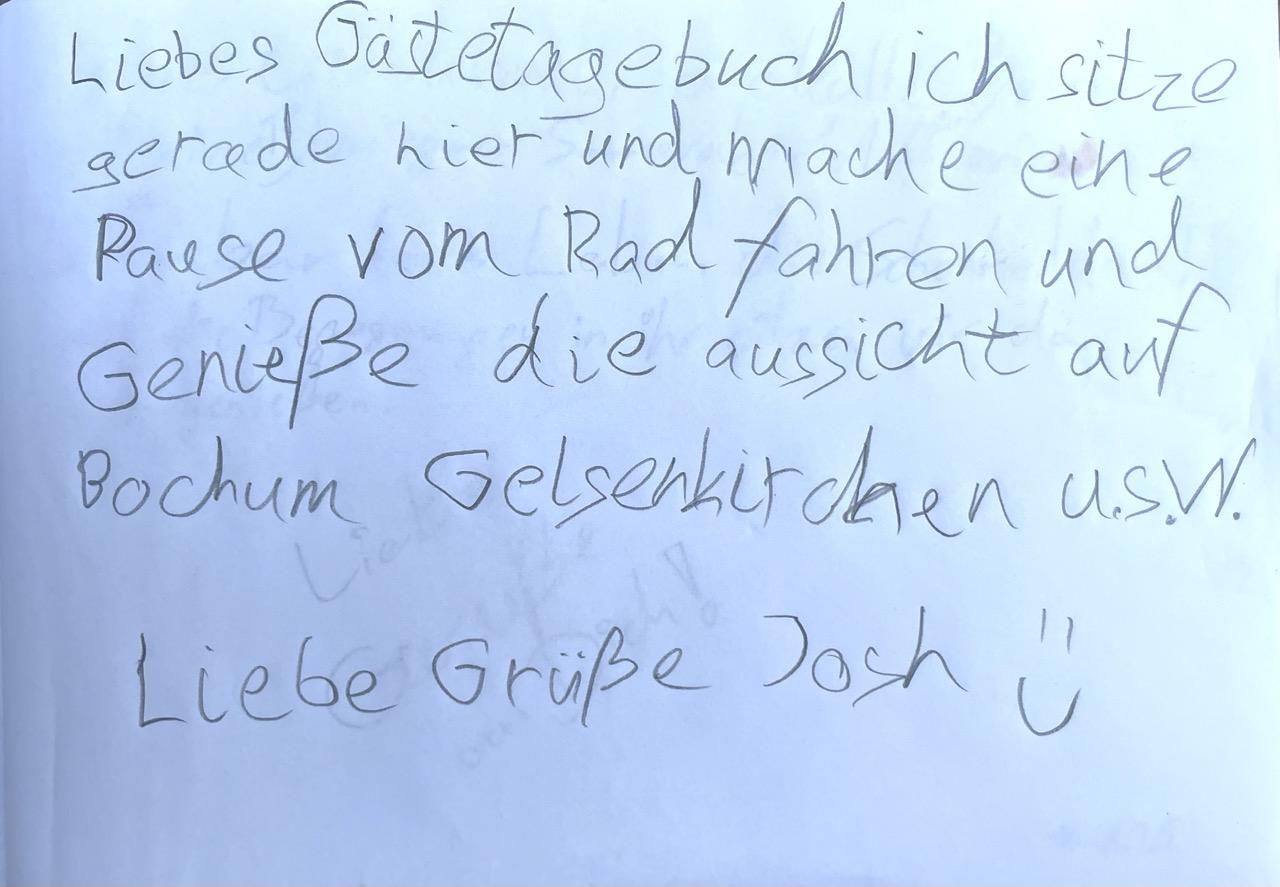 Liebes Gästetagebuch ich sitze
gerade hier und mache eine
Pause vom Rad fahren und
Genieße die aussicht auf
Bochum Gelsenkirchen u.s.w.
Liebe Grüße Josh